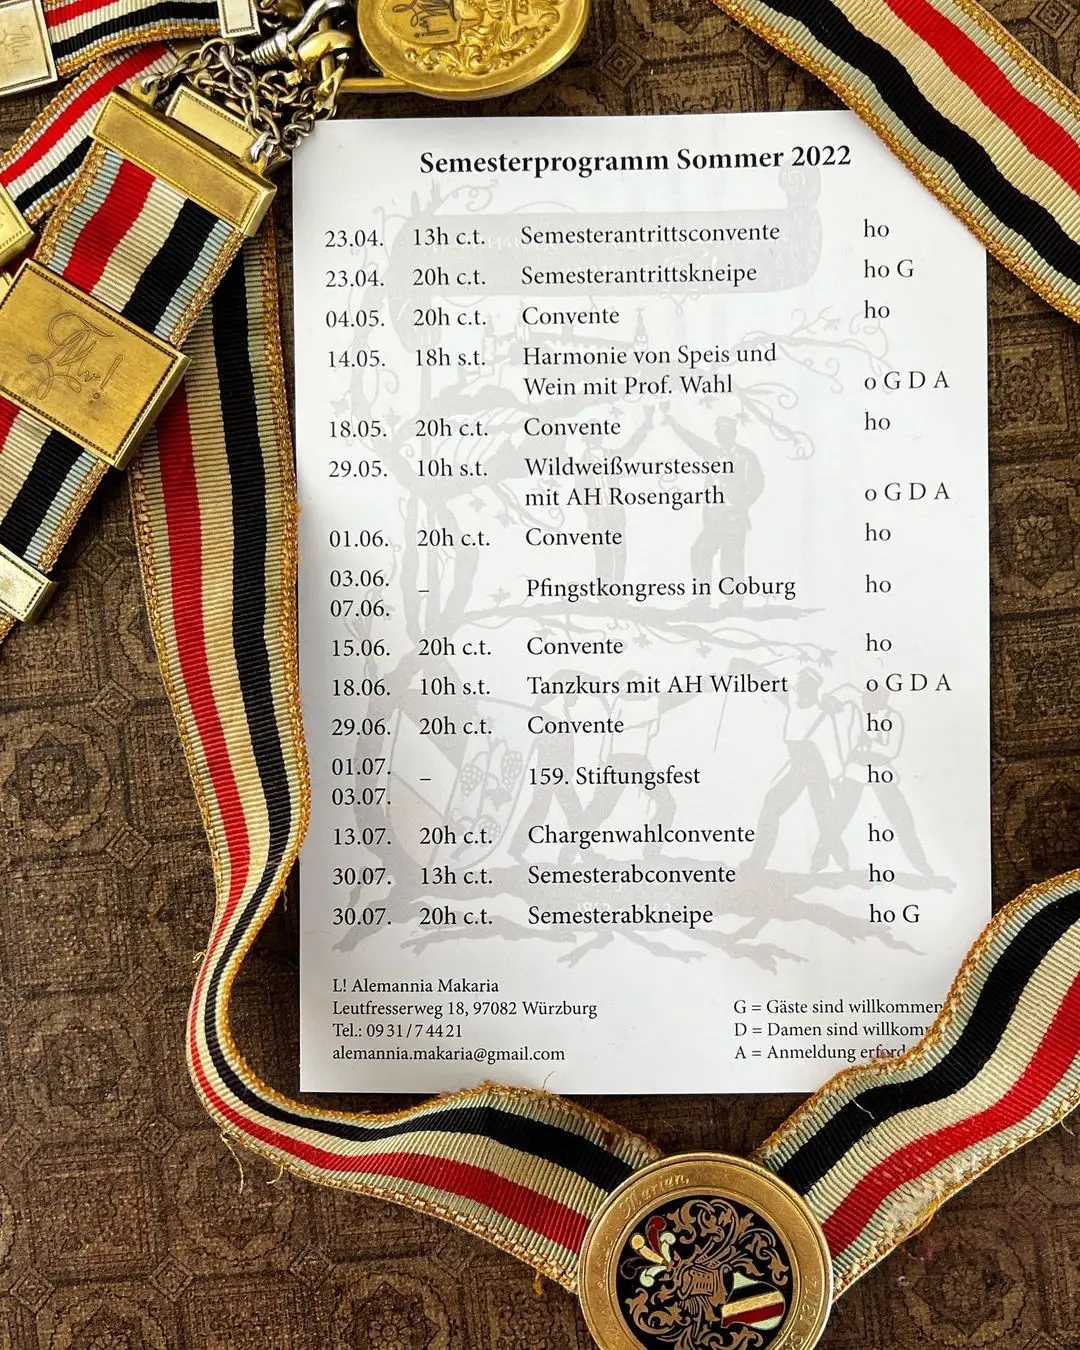 Semesterprogramm Sommer 2022
23.04. 13h c.t. Semesterantrittsconvente ho
23.04. 20h c.t. Semesterantrittskneipe ho G
04.05. 20h c.t. Convente ho
14.05. 18h s.t. Harmonie von Speis und
Wein mit Prof. Wahl o G D A
18.05. 20h c.t. Convente ho
29.05. 10h s.t. Wildweißwurstessen
mit AH Rosengarth o G D A
01.06. 20h c.t. Convente ho
03.06.
– Pfingstkongress in Coburg ho
07.06.
15.06. 20h c.t. Convente ho
18.06. 10h s.t. Tanzkurs mit AH Wilbert o G D A
29.06. 20h c.t. Convente ho
01.07.
– 159. Stiftungsfest ho
03.07.
13.07. 20h c.t. Chargenwahlconvente ho
30.07. 13h c.t. Semesterabconvente ho
30.07. 20h c.t. Semesterabkneipe ho G
L! Alemannia Makaria
Leutfresserweg 18, 97082 Würzburg
Tel.: 09 31 / 7 44 21
alemannia.makaria@gmail.com
G = Gäste sind willkommen
D = Damen sind willkom
A = Anmeldung erford